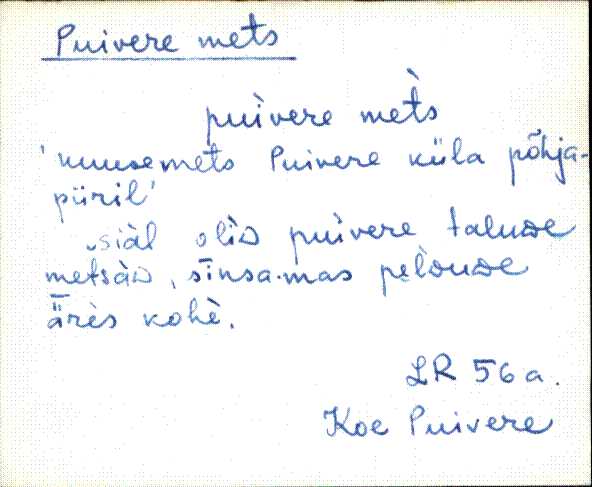 Puivere mets
puìvere mèt̀s
'kuusemets Puivere küla põhja-
piiril'
siàl olìᴅ puìvere taluᴅe
metsàᴅ, sīnsa·mas pèlᴅuᴅe
ǟrès kohè.
LR 56 a.
Koe Puivere